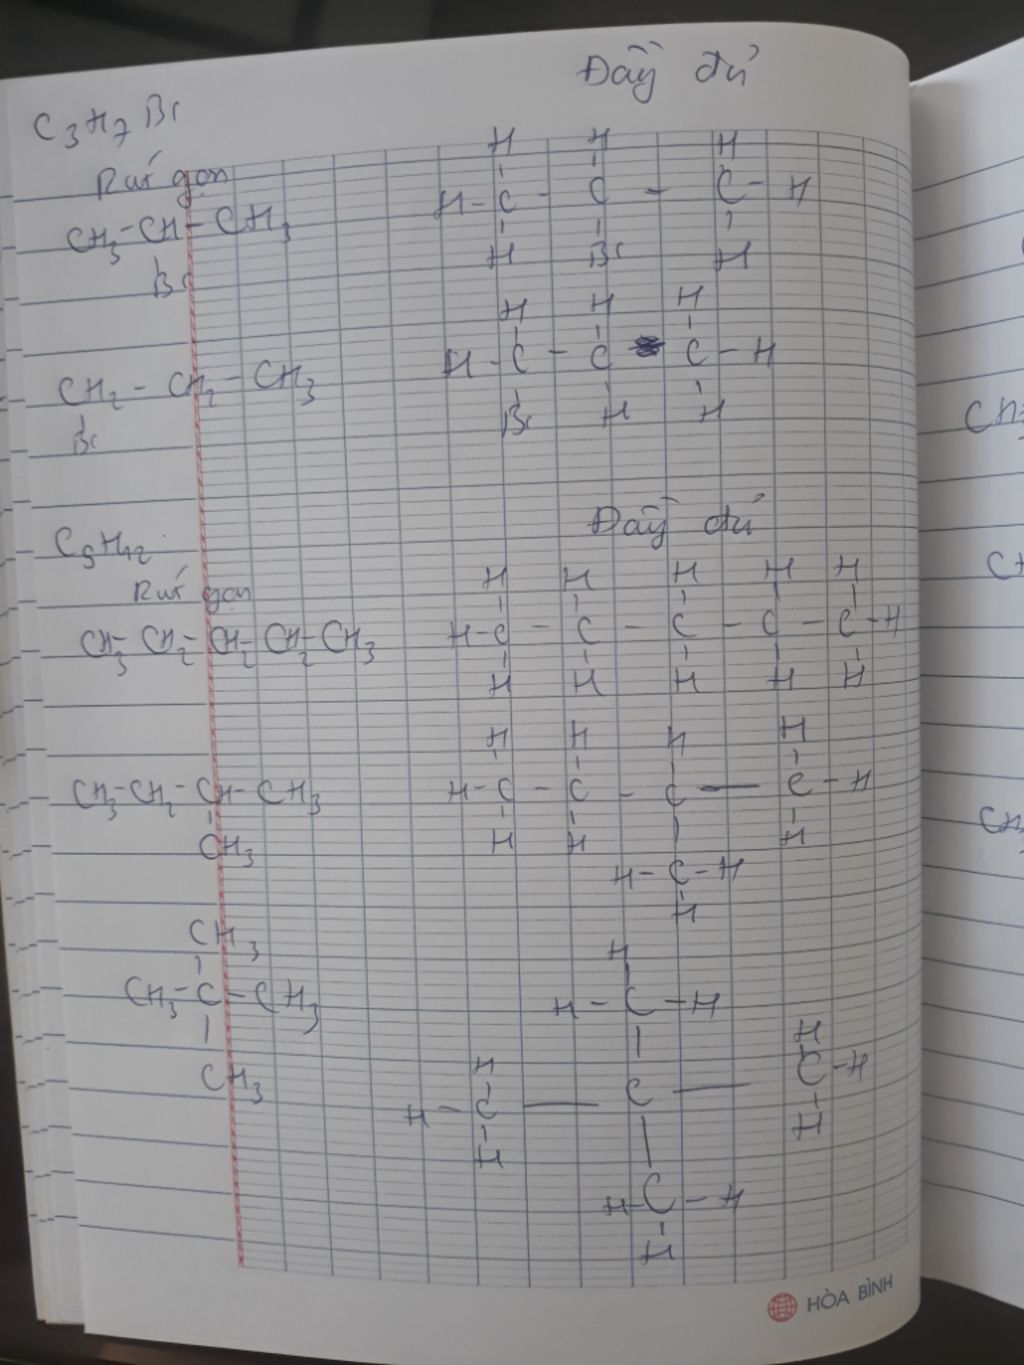 Đầy đủ
C3H7Br
Rút gọn
CH3-CH-CH3
Br
H H H
H-C-C-C-H
H Br H
CH2-CH2-CH3
Br
H H H
H-C-C C-H
Br H H
Đầy đủ
C5H12
Rút gọn
CH3-CH2-CH2-CH2-CH3
H H H H H
H-C-C-C-C-C-H
H H H H H
CH3-CH2-CH-CH3
CH3
H H H H
H-C-C-C-C-H
H H H
H-C-H
H
CH3
CH3-C-CH3
CH3
H
H-C-H
H H
H-C-C-C-H
H H
H-C-H
H
HÒA BÌNH
CH
CH
CH3